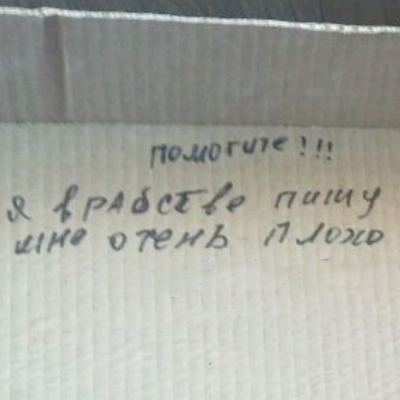 помогите!!!
я в рабстве пишу
мне отень плохо